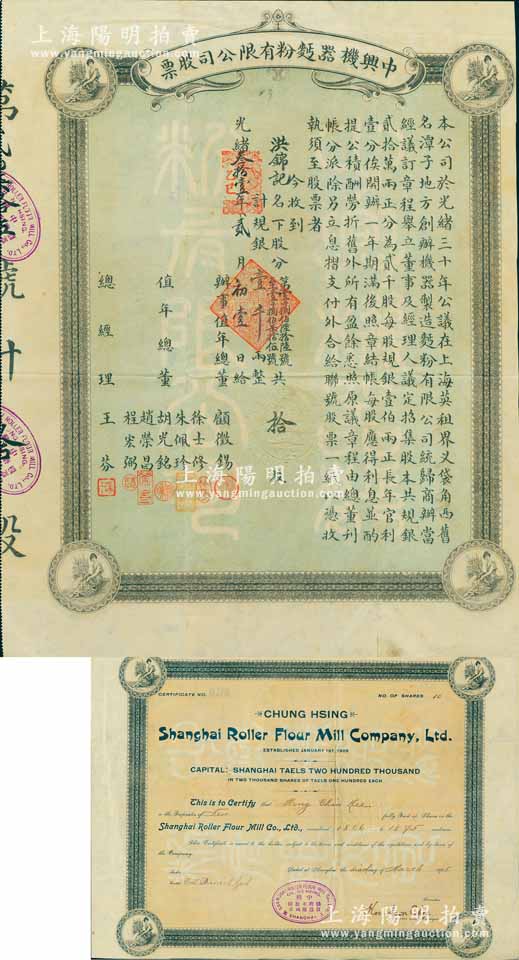 上海陽明拍賣
www.yangmingauction.com
中興機器麵粉有限公司股票
本公司於光緒三十年公議在上海英租界叉袋角西舊
名潭子地方創辦機器製造麵粉有限公司統歸商辦當
經議訂章程舉立董事及經理人議定招集股本共規銀
貳拾萬兩正分為貳千股每股規銀壹伯兩正長年官利
壹分俟開辦一年期滿後照章結帳每股應得利息並酌
提公積酬勞折舊外所有盈餘悉照原議章程由總董刊
帳分派除另立息摺支付外合給聯號股票一紙憑收
執須至股票者
今收到
洪錦記名下股分
共拾股
計規銀壹千兩整
光緒叁拾壹年貳月初壹日給
辦事值年總董
顧徵錫
徐士修
朱佩珍
值年總董
胡光銘
趙榮昌
程宏弼
總經理
王芬
號計拾股
上海陽明拍賣
www.yangmingauction.com
CERTIFICATE NO.
NO. OF SHARES 10
CHUNG HSING
Shanghai Roller Flour Mill Company, Ltd.
ESTABLISHED JANUARY 1ST, 1905
CAPITAL: SHANGHAI TAELS TWO HUNDRED THOUSAND
IN TWO THOUSAND SHARES OF TAELS ONE HUNDRED EACH.
This is to Certify that Hung Chin Kee
is the Proprietor of Ten fully Paid up Shares in the
Shanghai Roller Flour Mill Co., Ltd., numbered 1866 to 1875 inclusive
This Certificate is issued to the holder subject to the terms and conditions of the regulations and by-laws of
the Company.
Dated at Shanghai the day of March 1905
上海陽明拍賣
www.yangmingauction.com